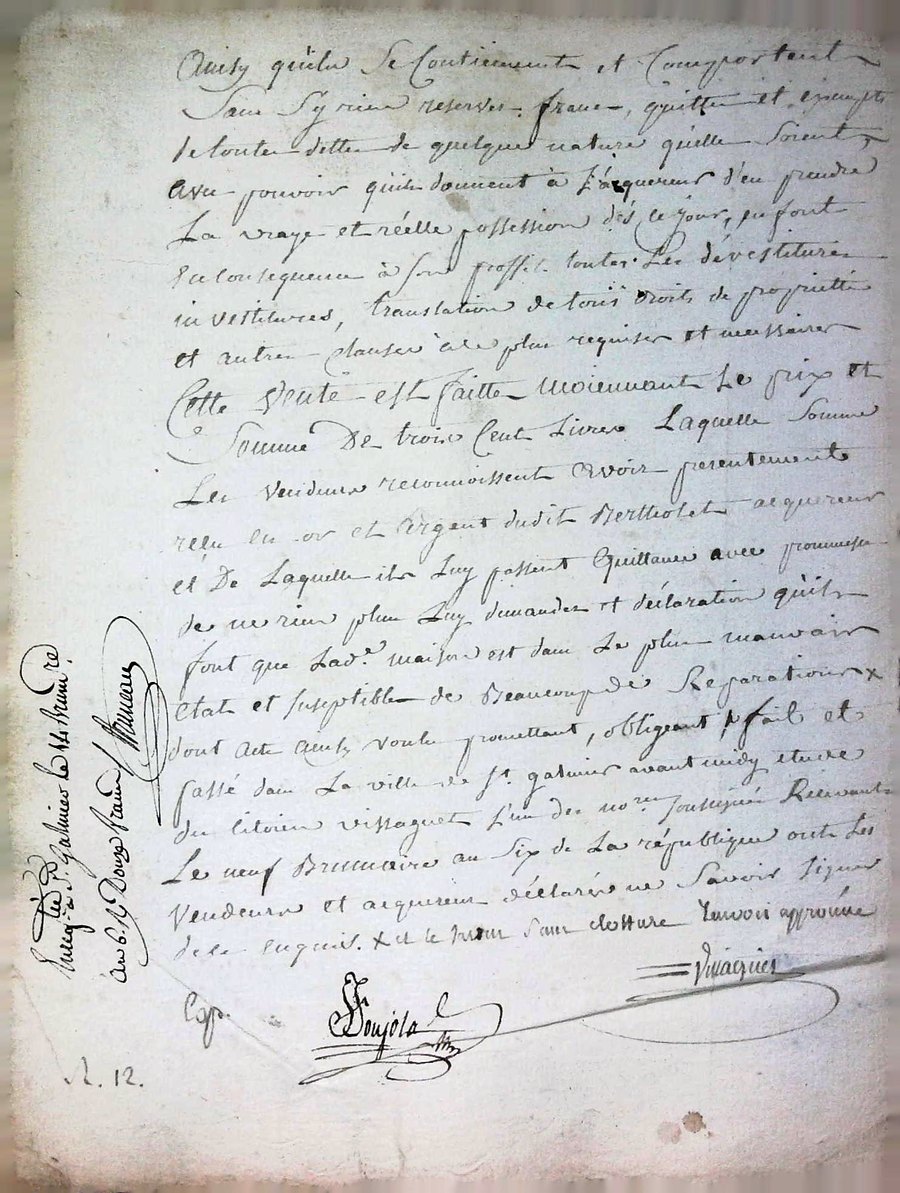 Ainsy quils Se Contiennent et Comportent
Sans Sy rien reserver, franc, quitte et exempts
de toutes dettes de quelque nature quelle Soient,
avec pouvoir quils donnent à L'acquereur d'en prendre
La vraye et réelle possession dès ce jour, en font
En Consequence à Son proffit toutes Les dévestitures
investitures, translation de tous droits de proprietté
et autres clauses à ce plus requises et necessaires
Cette Vente est faitte moiennant Le prix et
Somme De trois Cent Livres Laquelle Somme
Les Vendeurs reconnoissent Avoir presentement
reçu en or et argent dudit Bertholet acquereur
et De Laquelle ils Luy passent Quittance avec promesse
de ne rien plus Luy demander et déclaration quils
font que Lad.e maison est dans Le plus mauvais
état et susptible de Beaucoup de Reparations x
dont acte ainsy voulu promettant, obligeant, fait et
passé dans La ville de St. galmier avant midy etude
du Citoien vissaguet L'un des no.res Soussignés Recevants
Le neuf Brumaire an Six de La république ont Les
Vendeurs et acquereur déclarés ne Savoir Signer
de ce enquis. x et le Sans clotture Renvoi approuvé
Vissaguet
Exp.
Soujola
R. 12.
à St. Galmier le Brumaire
an 6. R Douze francs